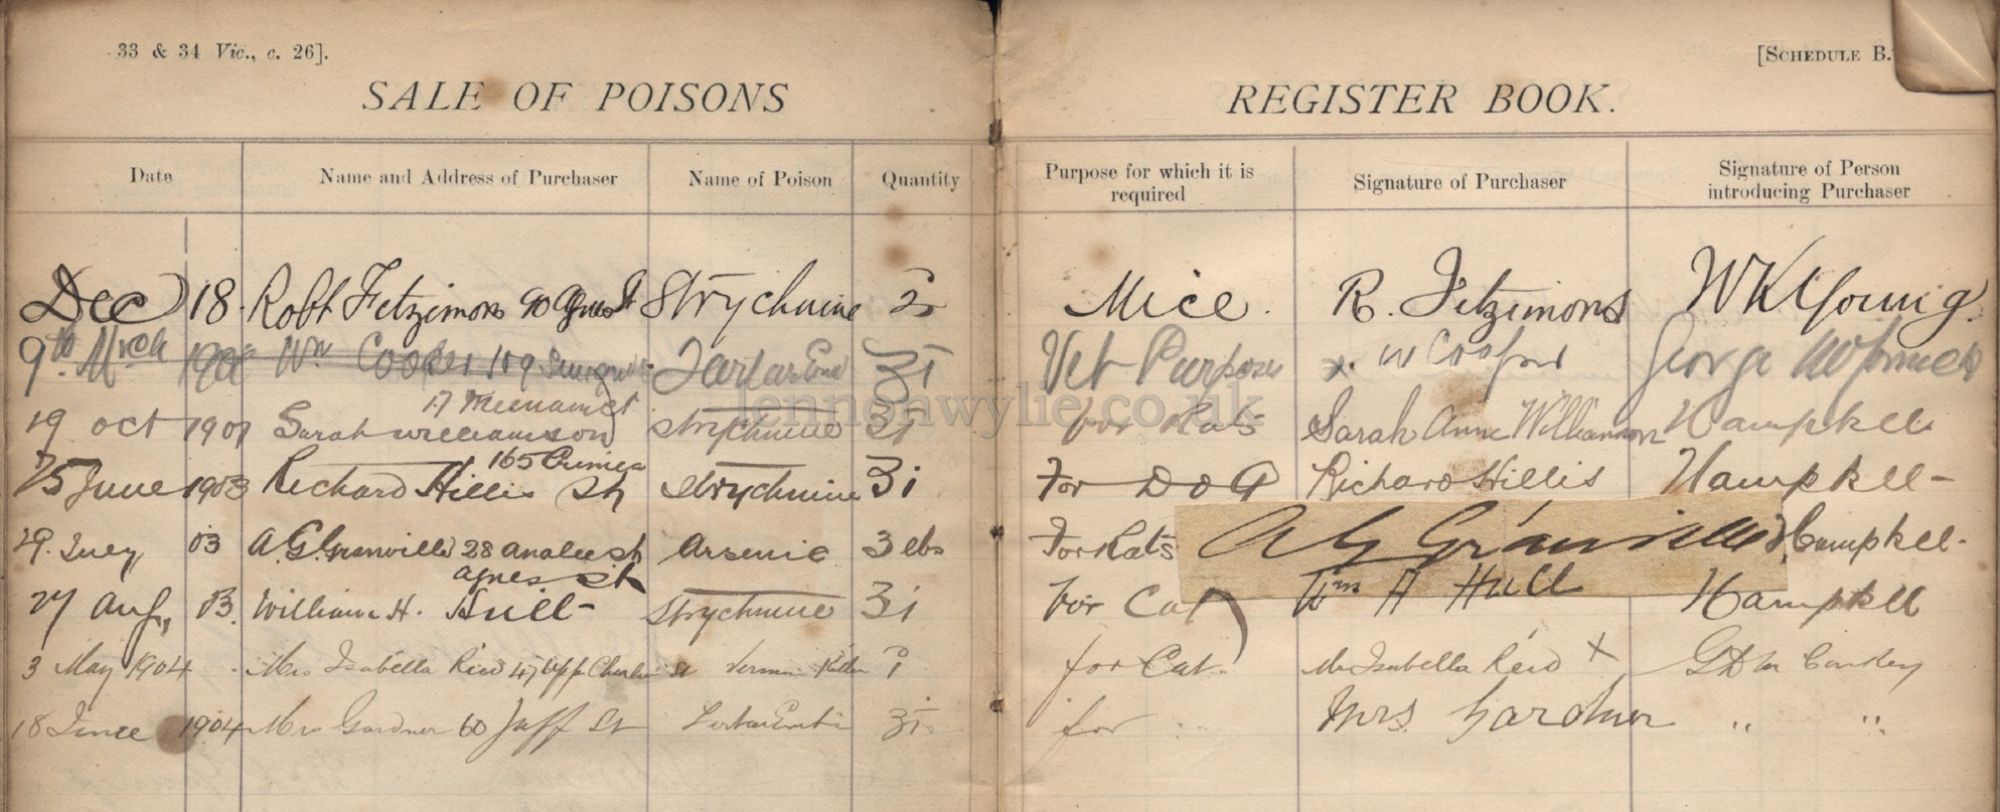 33 & 34 Vic., c. 26]. [SCHEDULE B.
SALE OF POISONS REGISTER BOOK.
Date Name and Address of Purchaser Name of Poison Quantity Purpose for which it is required Signature of Purchaser Signature of Person introducing Purchaser
Dec 18. Robt Fitzimons 90 Agnes St Strychnine Mice. R. Fitzimons WKYoung.
9th Mrch Wm 109 Vet Purposes x. W George
17
19 Oct 1901 Sarah Williamson Strychnine ʒi For Rats Sarah Anne Williamson HCampbell
165 Crimea
25 June 1903 Richard Hillis St Strychnine ʒi For DOG Richard Hillis HCampbell-
29. 03 A.G. Granville 28 St Arsenic 3 lbs For Rats A G Granville HCampbell-
Agnes St
27 Aug, 03. William H. Hull- Strychnine ʒi For Cat) Wm H Hull HCampbell
3 May 1904 Mrs Isabella Reid 47 Upp Charleville St Vermin Killer for Cat. Mrs Isabella Reid X
18 June 1904 Mrs Gardner 60 St ʒi for " Mrs. Gardner " "
lennonwylie.co.uk